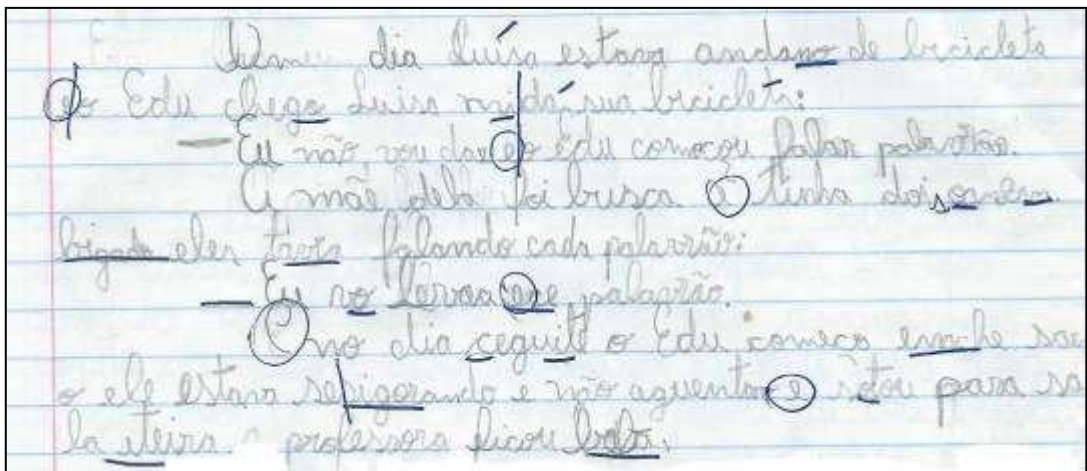 dia Luísa estava andano de bricicleta
e o Edu chego Luisa mi dá sua bricicleta:
— Eu não vou dar e o Edu começou falar palavrão.
A mãe dela foi busca e tinha dois
bigado eles falando cada palavrão:
— Eu no palavrão.
E no dia ceguite o Edu começo
o ele estava se sigorando e não aguentou e para sa
la iteira professora ficou